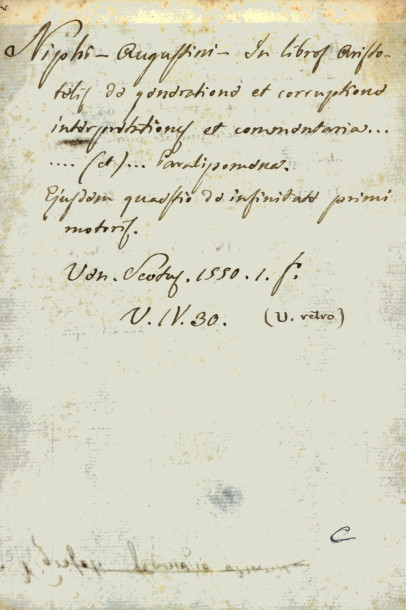 Niphi – Augustini – In libros Aristo-
telis de generatione et corruptione
interpretationes et commentaria...
.... (et)... Paralipomena.
Ejusdem quaestio de infinitate primi
motoris.
Ven. Scotus. 1550. 1. f.
V. IV. 30. (V. retro)
C